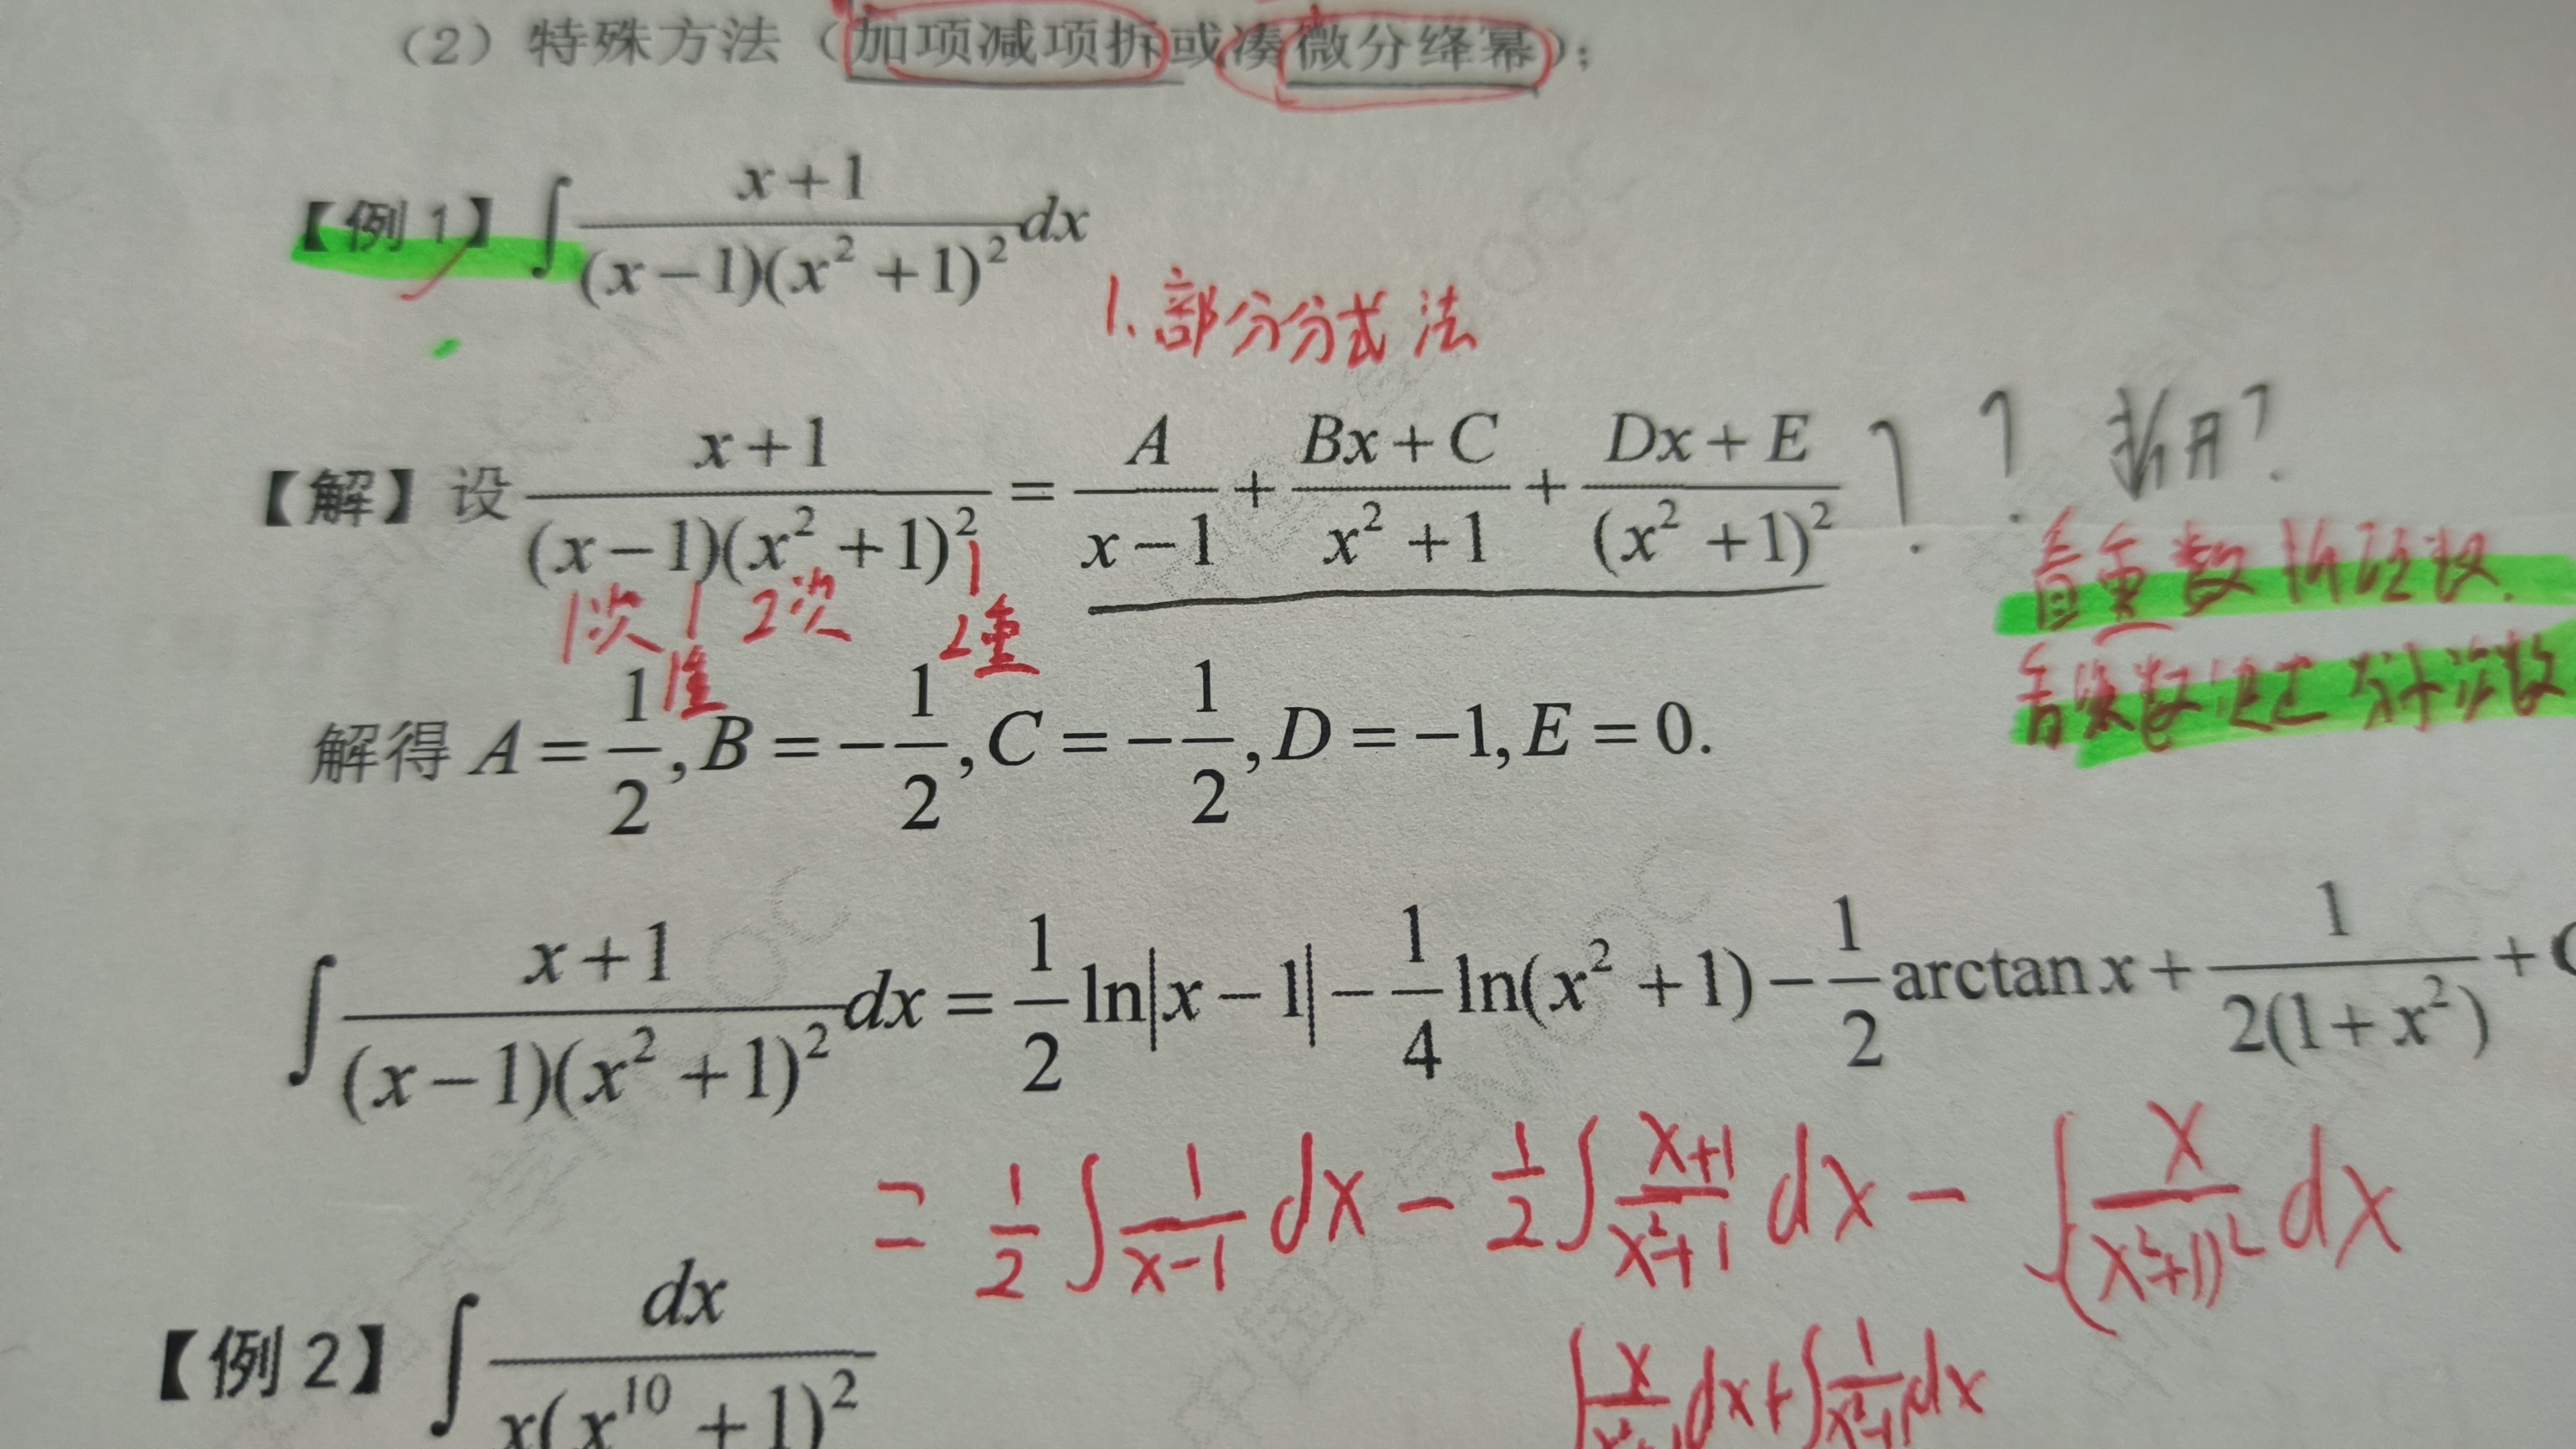 （2）特殊方法（加项减项拆或凑微分绛幂）；
【例 1】∫ (x+1)/((x−1)(x²+1)²) dx
1.部分分式法
【解】设 (x+1)/((x−1)(x²+1)²) = A/(x−1) + (Bx+C)/(x²+1) + (Dx+E)/(x²+1)² ? ? 拆开?
1次 1重 2次 2重
看重数拆
解得 A = 1/2, B = −1/2, C = −1/2, D = −1, E = 0.
∫ (x+1)/((x−1)(x²+1)²) dx = 1/2 ln|x−1| − 1/4 ln(x²+1) − 1/2 arctan x + 1/(2(1+x²)) + C
= 1/2 ∫ 1/(x-1) dx − 1/2 ∫ (x+1)/(x²+1) dx − ∫ x/(x²+1)² dx
【例 2】∫ dx/(x(x¹⁰+1)²)